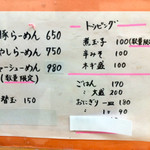 豚らーめん 650
やしらーめん 750
チャーシューメン 980
(数量限定)
替玉 150
トッピング
煮玉子 100(数量限定)
辛みそ 100
ネギ盛 100
ごはん 170
〃 大盛 200
おにぎり 一皿 180
〃 1ヶ 90